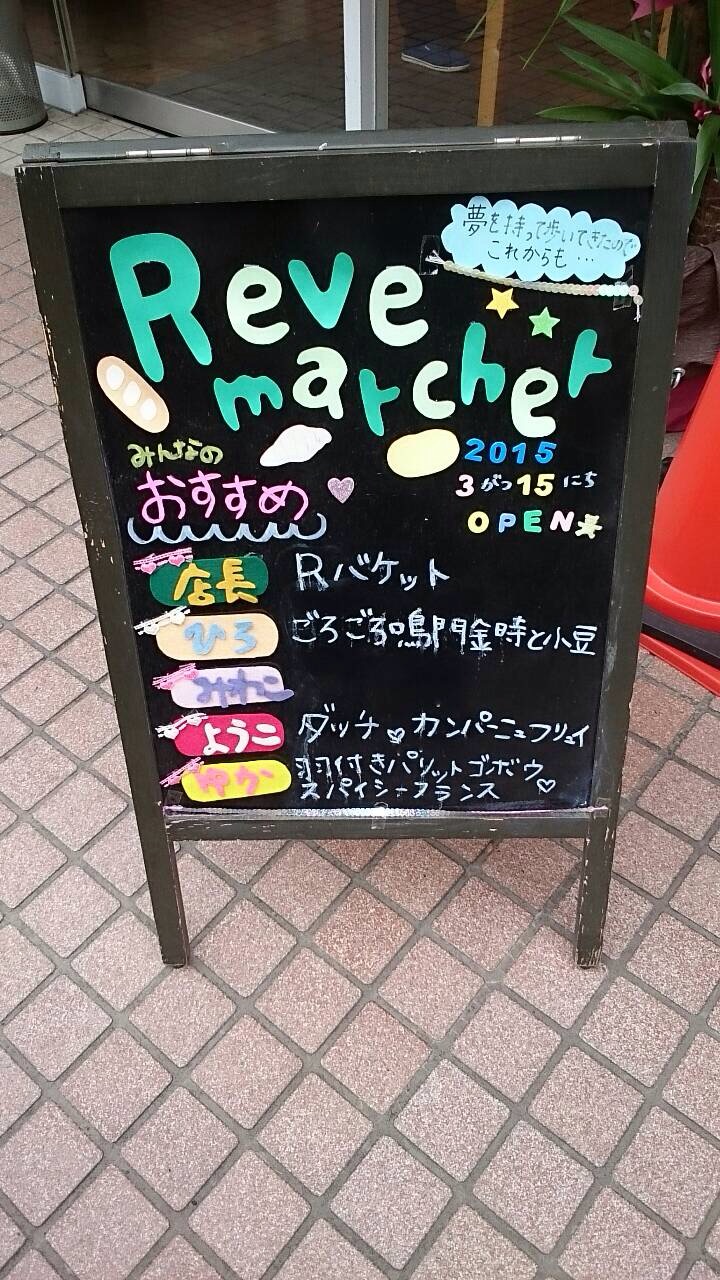 夢を持って歩いてきたので
これからも…
Reve
marcher
みんなの
おすすめ
2015
3がつ15にち
OPEN
店長 Rバケット
ひろ ごろごろ鳴門金時と小豆
みわこ
ようこ ダッチ♡カンパーニュフリュイ
ゆか 羽付きパリットゴボウ
スパイシーフランス♡